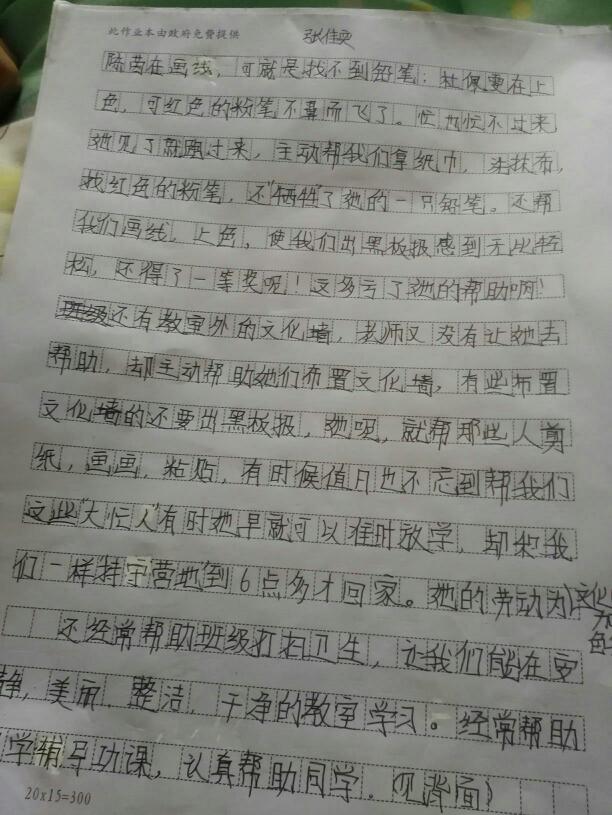 此作业本由政府免费提供
陈茜在画线，可就是找不到铅笔；杜保雯在上
色，可红色的粉笔不翼而飞了。忙也忙不过来，
她见了就跑过来，主动帮我们拿纸巾，洗抹布，
找红色的粉笔，还“牺牲”了她的一只铅笔。还帮
我们画线，上色，使我们出黑板报感到无比轻
松，还得了一等奖呢！这多亏了她的帮助啊！
班级还有教室外的文化墙，老师又没有让她去
帮助，却主动帮助她们布置文化墙，有些布置
文化墙的还要出黑板报，她呢，就帮那些人剪
纸，画画，粘贴，有时候值日也不忘到帮我们
这些“大忙人”有时她早就可以准时放学，却和我
们一样持守营地到6点多才回家。她的劳动为文化
还经常帮助班级打扫卫生，让我们能在安
静，美丽，整洁，干净的教室学习。经常帮助
学辅导功课，认真帮助同学。（见背面）
20x15=300